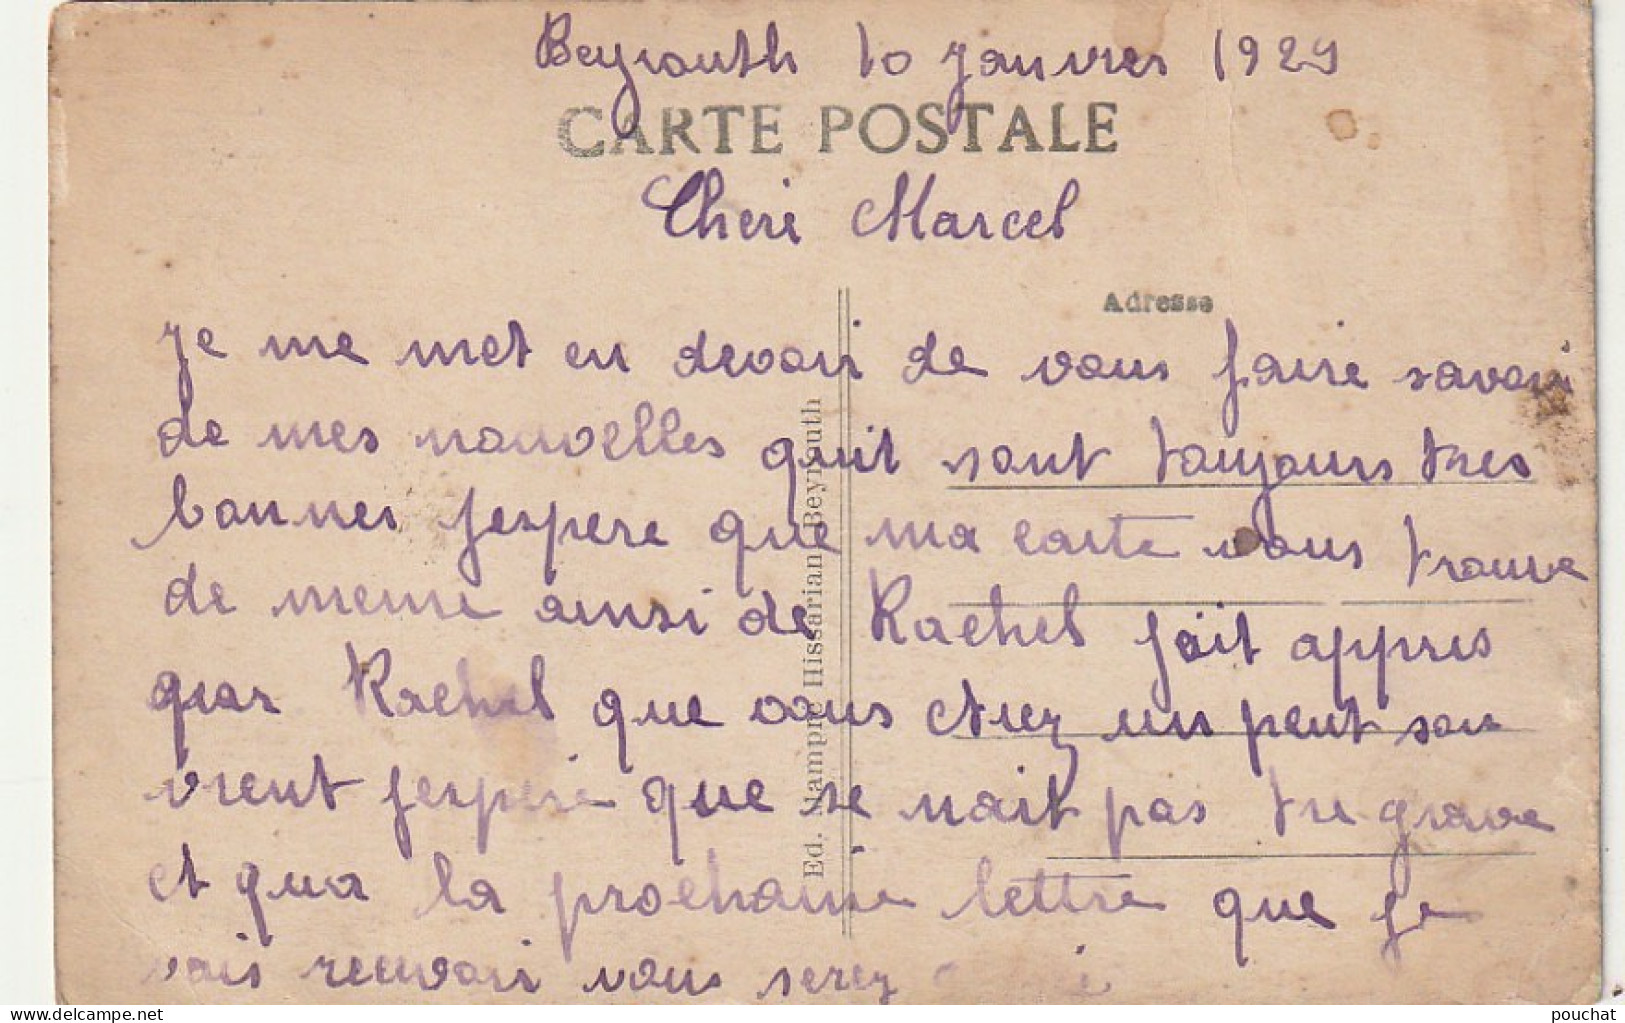 Beyrouth 10 Janvier 1929
CARTE POSTALE
Cheri Marcel
Adresse
Je me met en devoir de vous faire savoir
de mes nouvelles quit sont toujours tres
bonnes jespere que ma carte vous trouve
de meme ainsi de Rachel jait appres
quar Rachel que vous etiez un peut sou
vrent jespere que se nait pas tre grave
et qua la prochaine lettre que je
vais recevoir vous serez
Ed. Mampre Hissarian Beyrouth
delcampe.net
pouchat